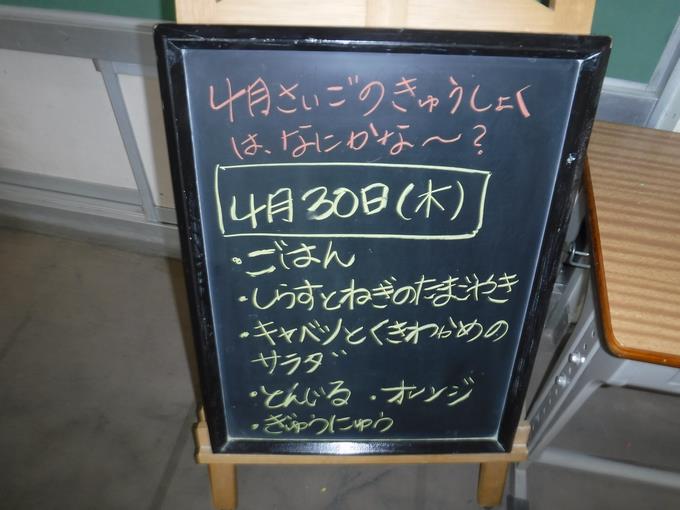 4月さいごのきゅうしょく
は、なにかな～?
4月30日(木)
・ごはん
・しらすとねぎのたまごやき
・キャベツとくきわかめの
サラダ
・とんじる ・オレンジ
・ぎゅうにゅう